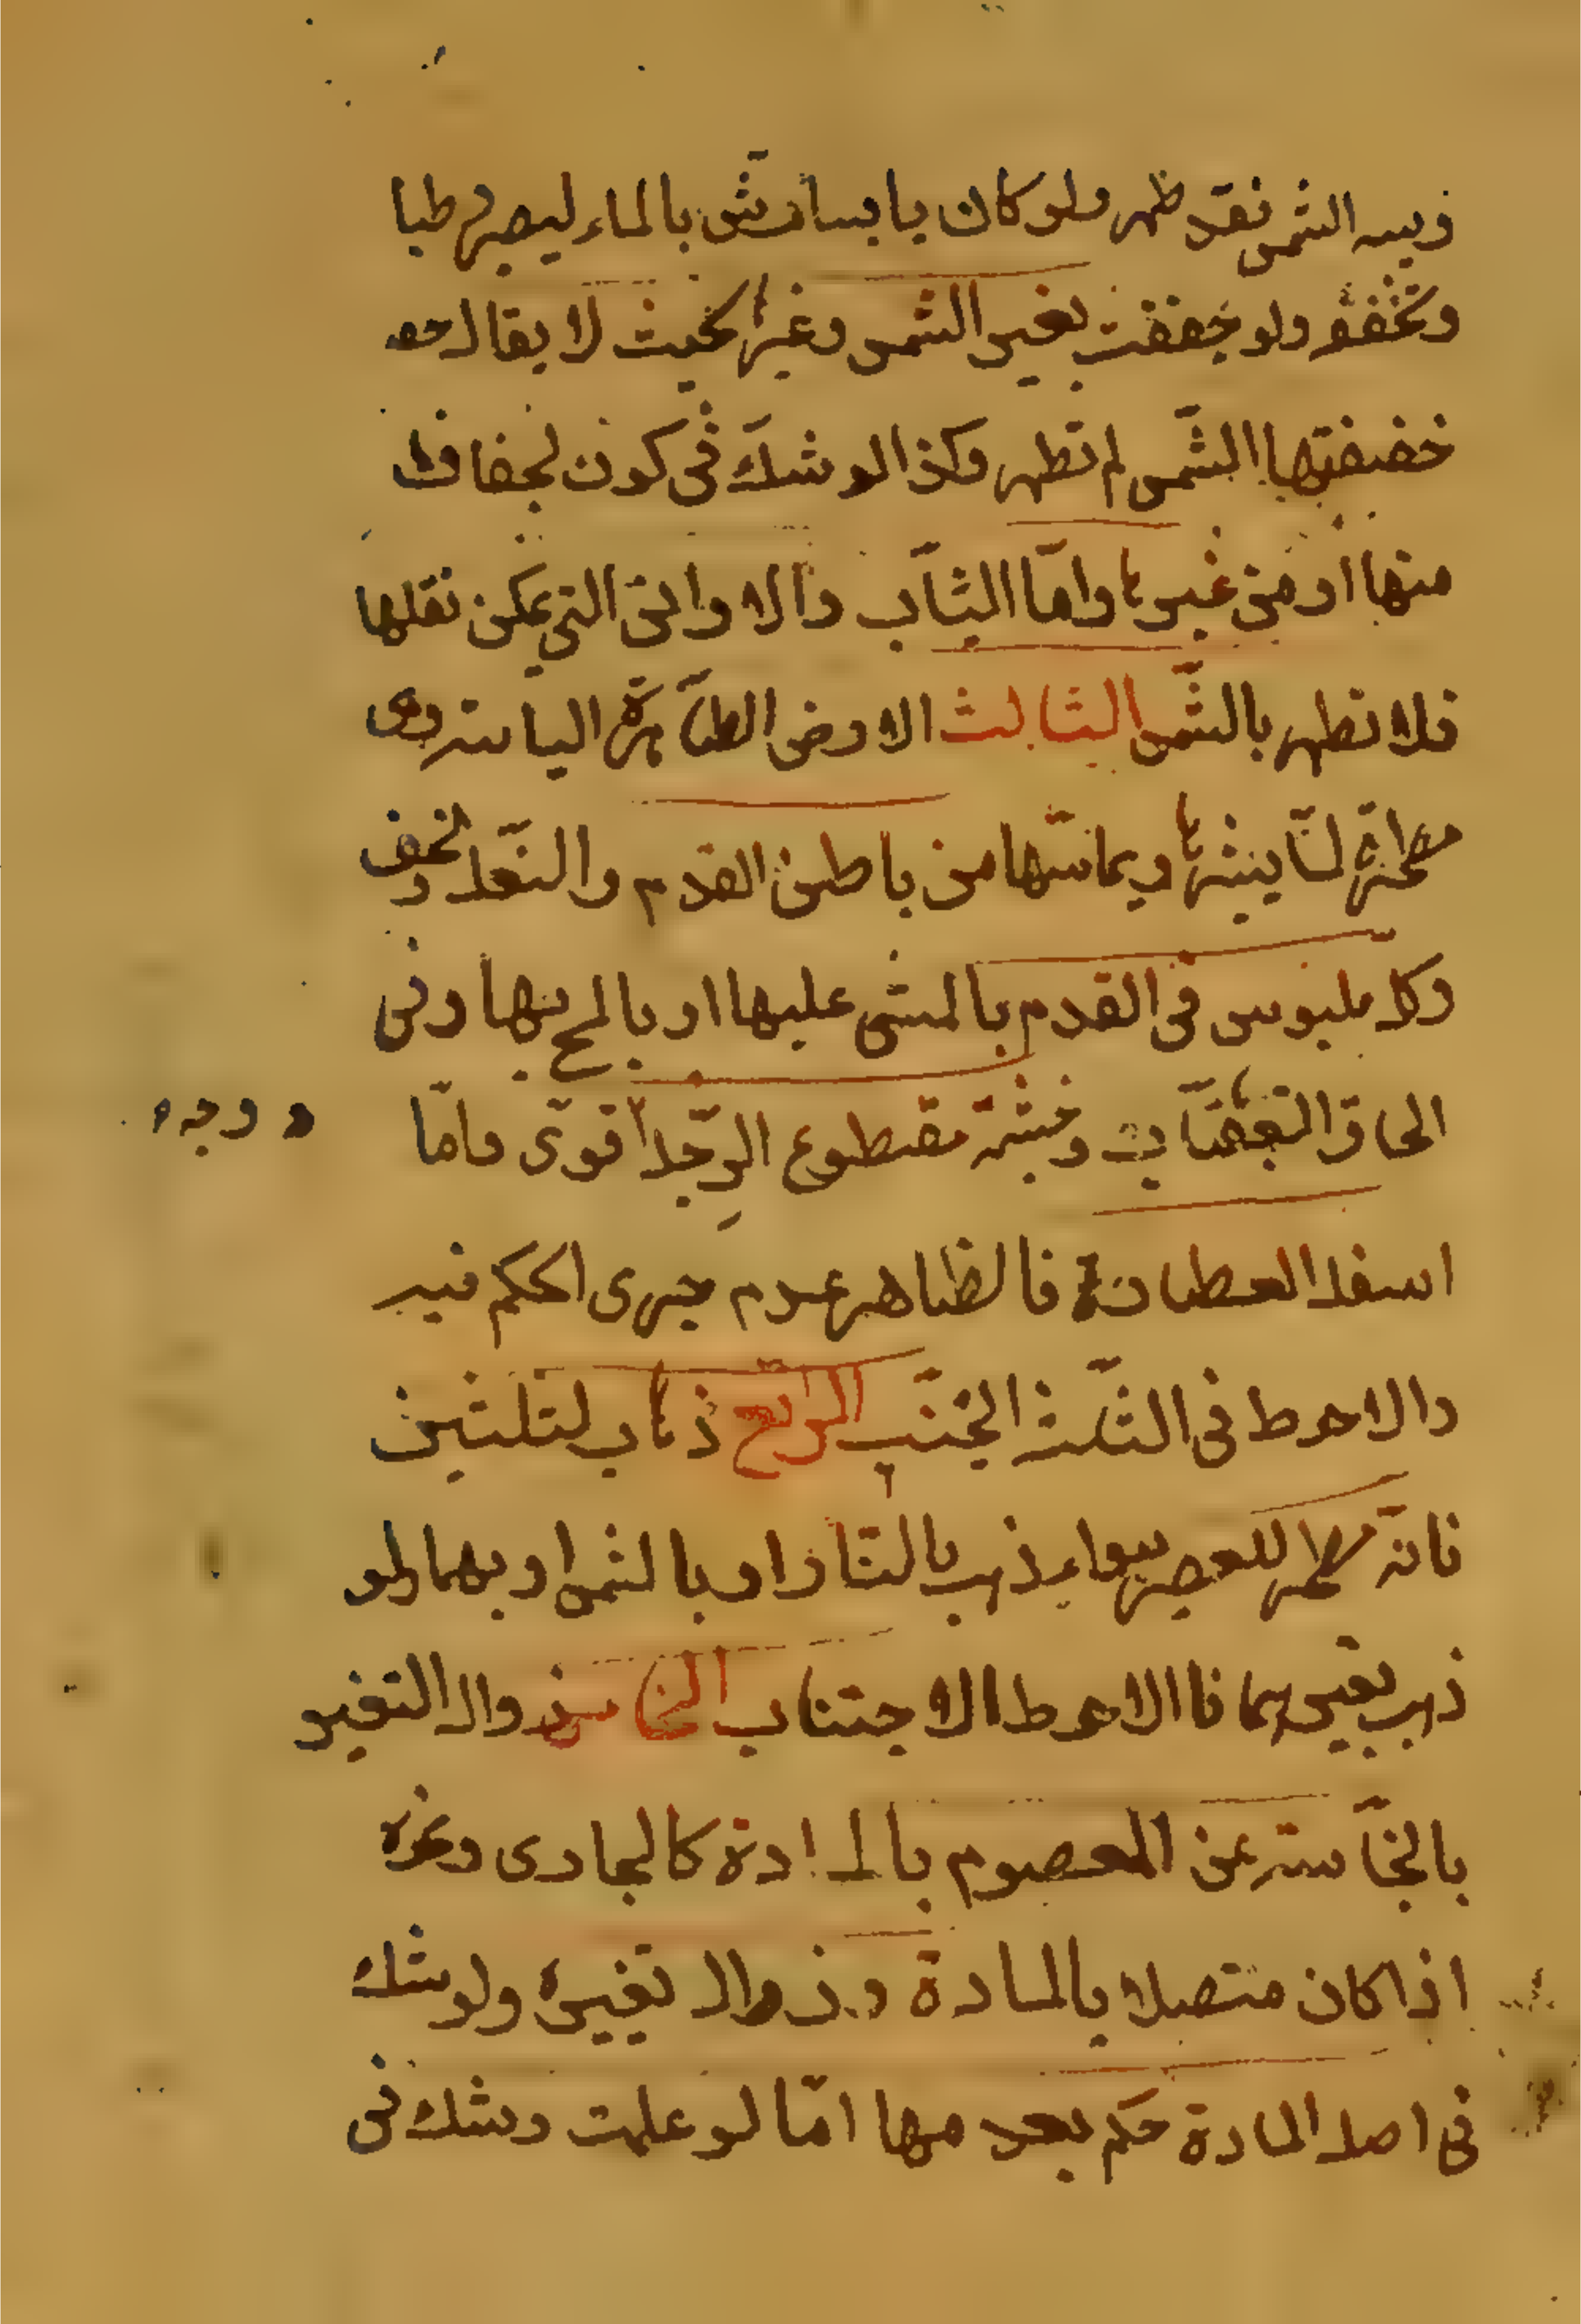 ويبسه الشمس فقد طهر ولو كان يابسا رش بالماء ليصير رطبا
وتجففه ولو جففت بغير الشمس وغيرها بحيث لا يقال
جففتها الشمس لم تطهر وكذا لو شك في كون الجفاف
منها او من غيرها واما الثياب والاواني التي يمكن نقلها
فلا تطهر بالشمس الثالث الارض الطاهرة اليابسة وهي
مطهرة لما ينثرها ويماسها من باطن القدم والنعل والخف
وكل ملبوس في القدم بالمشي عليها او بالمسح بها وفي
الحاق القبقاب وخشبة مقطوع الرجل اقوى واما
وجه
اسفل العصا فالظاهر عدم جرى الحكم فيه
والاحوط في الثلث التجنب الرابع ذهاب الثلثين
فانه مطهر للعصير سواء ذهب بالنار او بالشمس او بهما ولو
ذهب بغيرهما فالاحوط الاجتناب الخامس زوال التغير
بالنجاسة عن المعصوم بالمادة كالجاري وغيره
اذا كان متصلا بالمادة وزوال تغييره ولو شك
في اصل المادة حكم بعدمها اما لو علمت وشك في